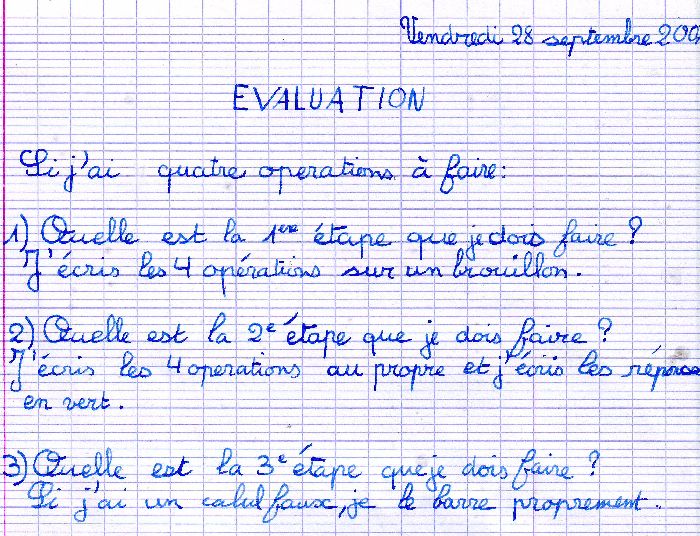 Vendredi 28 septembre 200
EVALUATION
Si j'ai quatre operations à faire:
1) Quelle est la 1ère étape que je dois faire ?
J'écris les 4 opérations sur un brouillon.
2) Quelle est la 2e étape que je dois faire ?
J'écris les 4 operations au propre et j'écris les réponse
en vert.
3) Quelle est la 3e étape que je dois faire ?
Si j'ai un calul faux, je le barre proprement.